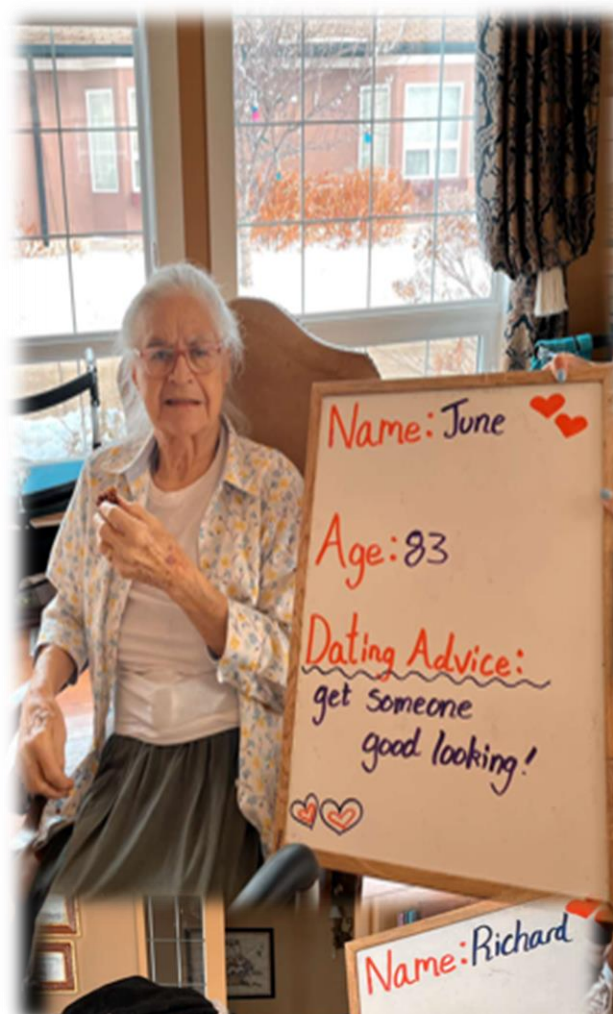 Name: June
Age: 83
Dating Advice:
get someone
good looking!
Name: Richard